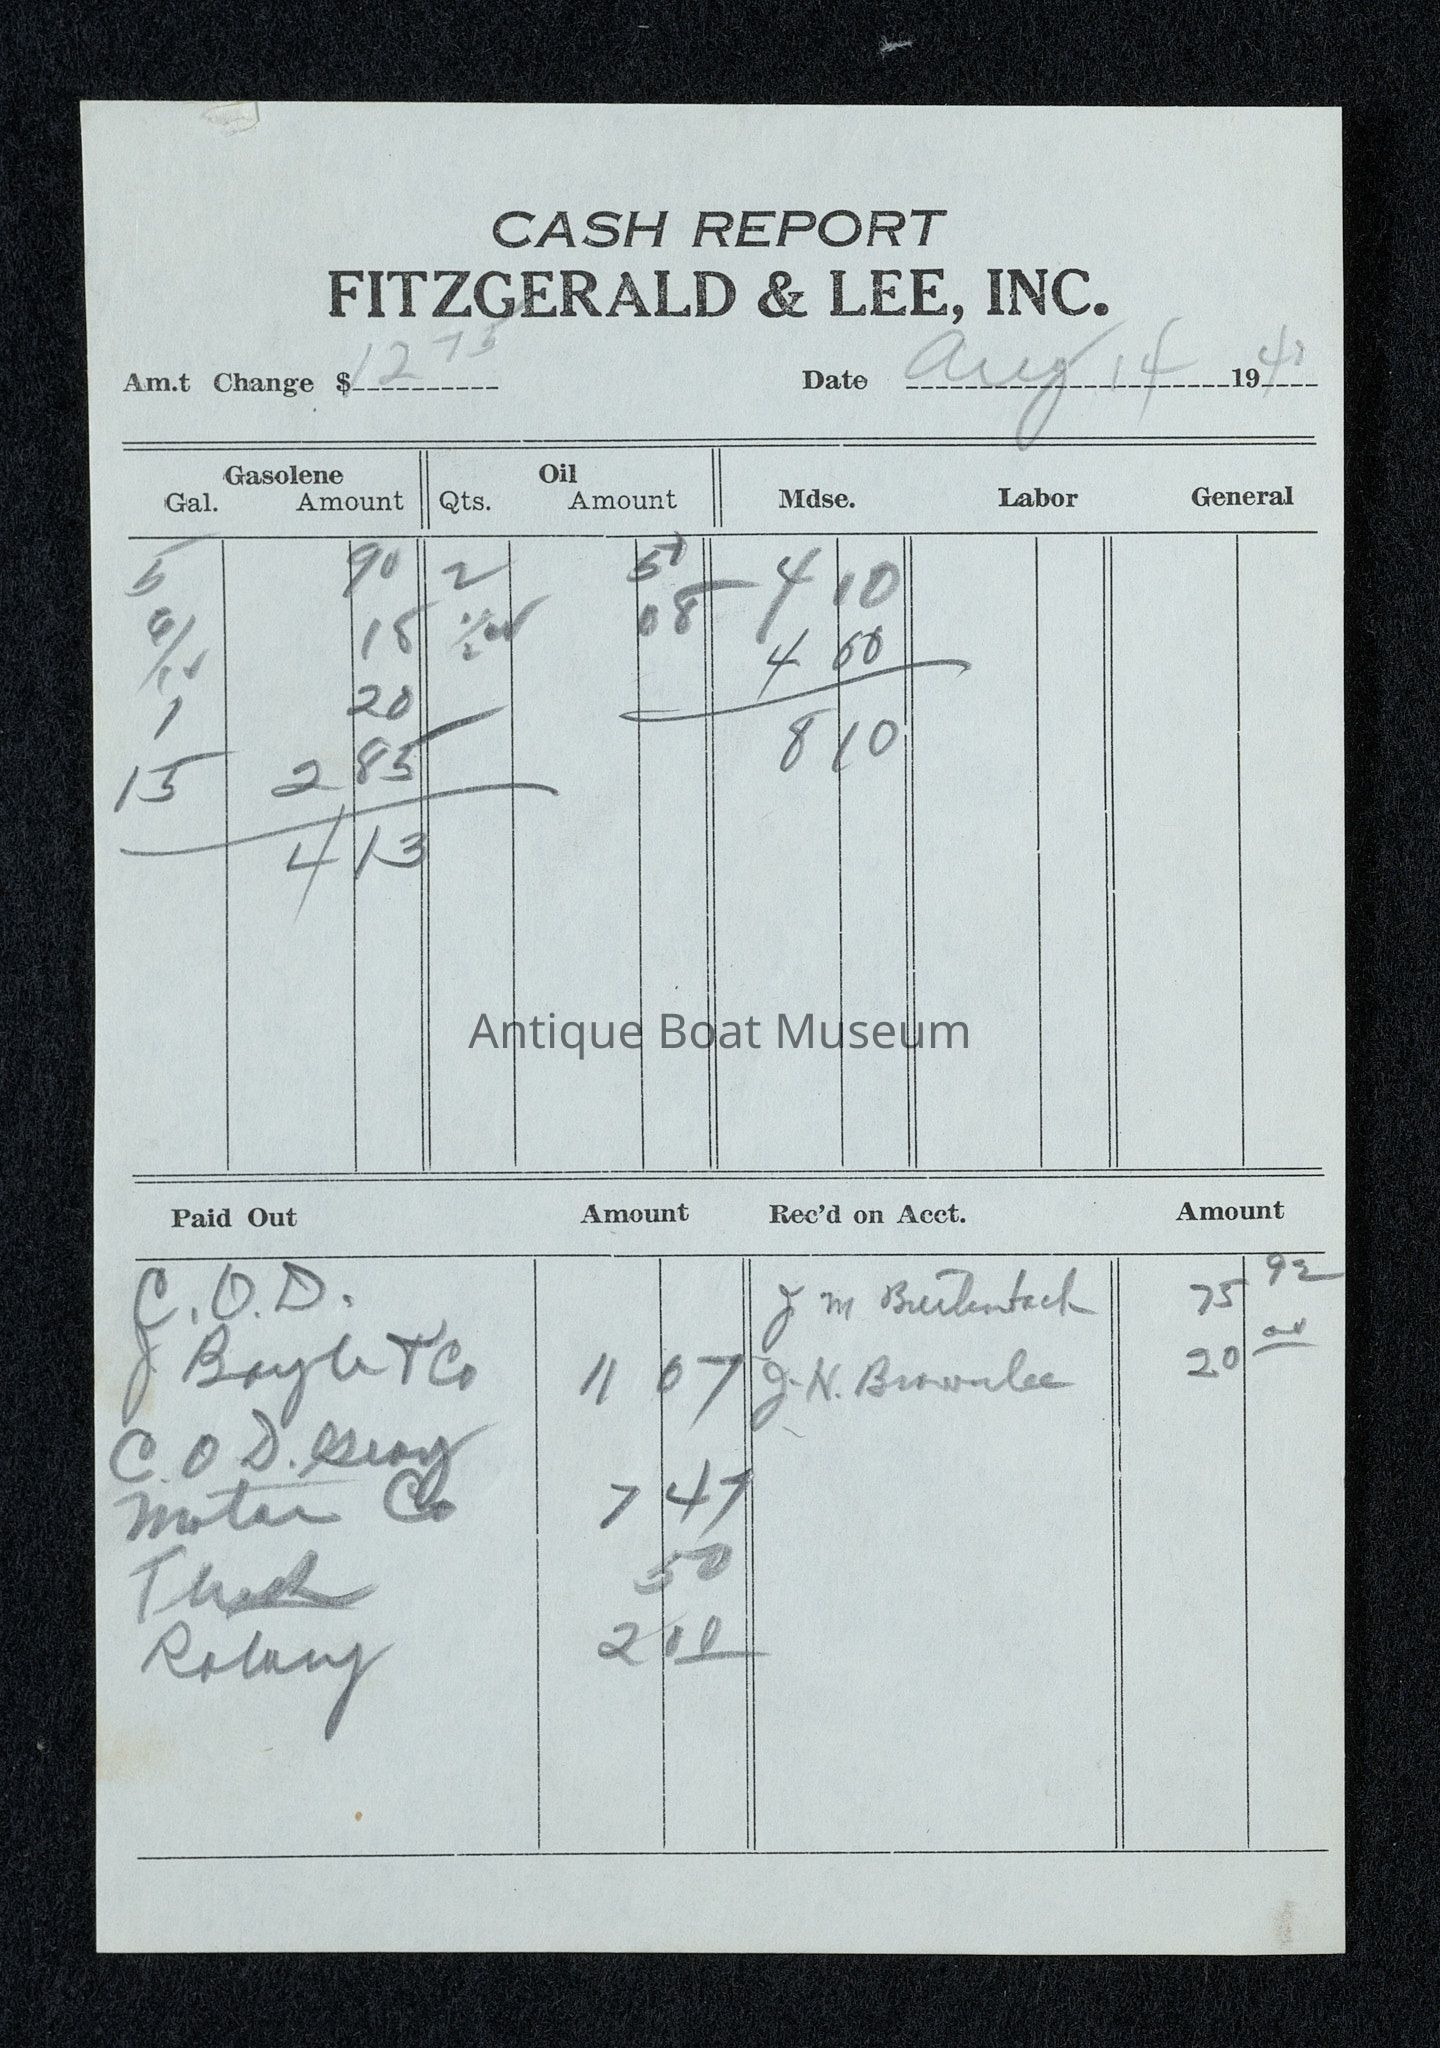 CASH REPORT
FITZGERALD & LEE, INC.
Am.t Change $ 12 75
Date Aug 14 19 4
Gasolene Oil
Gal. Amount Qts. Amount Mdse. Labor General
5 90 2 5 4 10
15 08 4 00
1 20 8 10
15 2 85
4 13
Antique Boat Museum
Paid Out Amount Rec'd on Acct. Amount
C.O.D. J M 75 92
J Boyle & Co 11 07 J. H. Brownlee 20 00
C.O.D.
Motor Co 7 47
50
2 00